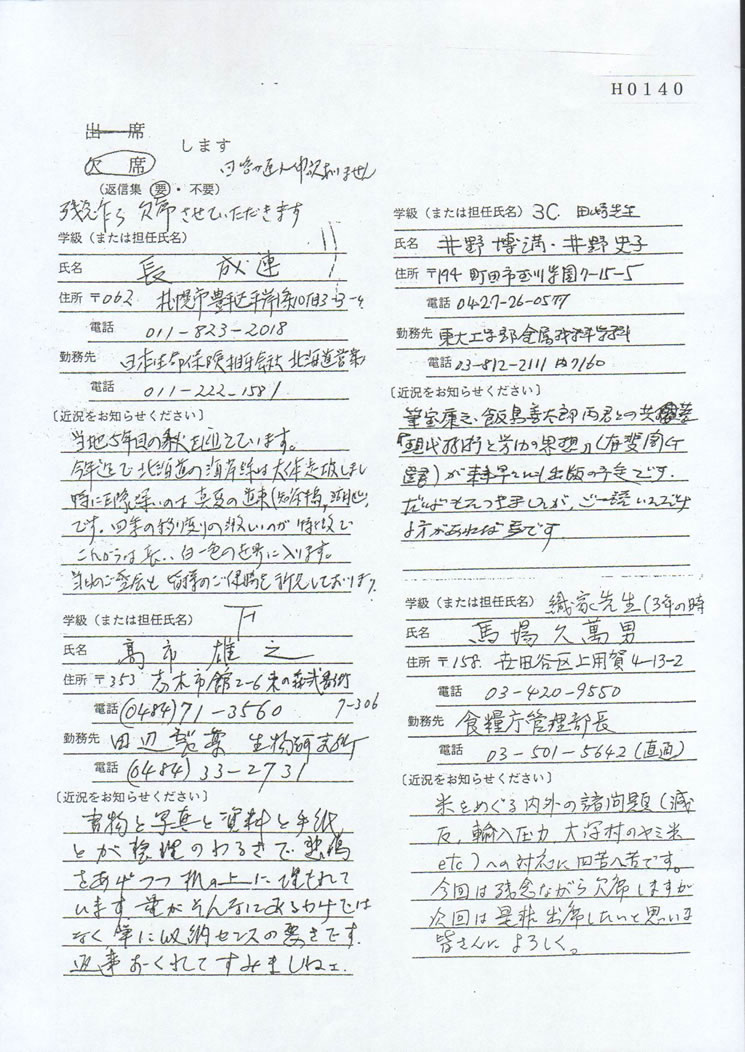 H0140
出席
欠席
します
回答が遅れ申訳ありません
(返信集 要・不要)
残念乍ら 欠席させていただきます
学級(または担任氏名)
氏名 長 成連
住所 〒062 札幌市豊平区平岸
電話 011-823-2018
勤務先 日本生命保険相互会社 北海道営業
電話 011-222-1581
〔近況をお知らせください〕
当地5年目の秋を迎えています。
今年迄で北海道の海岸線は大体走破しまし
時に印象深いのは真夏の道東
です。四季の移り変りの激しいのが特徴で
これからは長い、白一色の世界に入ります。
当日のご盛会と皆様のご健勝を祈念しております
学級(または担任氏名) F
氏名 高市 雄之
住所 〒353 志木市館2-6 東の森弐番街
7-306
電話 (0484)71-3560
勤務先 田辺製薬 生物研究所
電話 (0484)33-2731
〔近況をお知らせください〕
書物と写真と資料と手紙
とが整理のわるさで悲鳴
をあげつつ机の上に埋もれて
います 量がそんなにあるわけでは
なく単に収納センスの悪さです.
返事おくれてすみましぇん.
学級(または担任氏名) 3C 田崎先生
氏名 井野博満・井野史子
住所 〒194 町田市玉川学園7-15-5
電話 0427-26-0577
勤務先 東大工学部金属材料学科
電話 03-812-2111 内7160
〔近況をお知らせください〕
笠室康之、飯島善太郎両君との共著
『現代技術と労働の思想』(有斐閣
選書)が来春早々に出版の予定です.
だいぶもたつきましたが、ご一読いただけ
る方があれば幸です.
学級(または担任氏名) 織家先生(3年の時
氏名 馬場久萬男
住所 〒158. 世田谷区上用賀4-13-2
電話 03-420-9550
勤務先 食糧庁管理部長
電話 03-501-5642(直通)
〔近況をお知らせください〕
米をめぐる内外の諸問題(減
反、輸入圧力 大潟村のヤミ米
etc)への対応に四苦八苦です。
今回は残念ながら欠席しますが
次回は是非出席したいと思いま
皆さんによろしく。